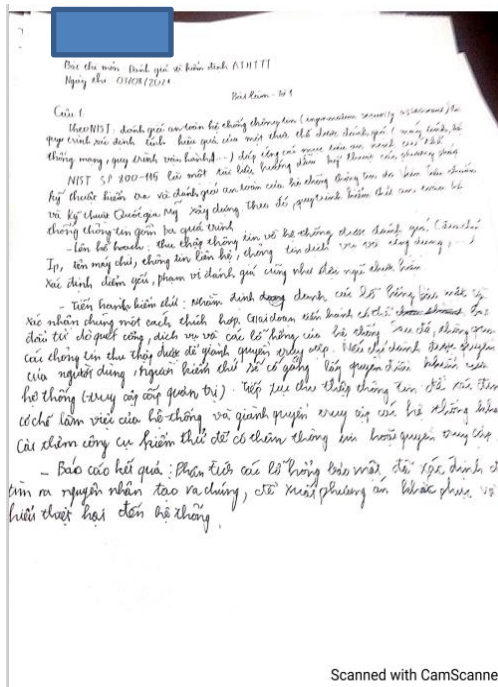 Bài thi môn Đánh giá và kiểm định ATHTTT
Ngày thi 07/08/2021
Bài làm - Đề 1
Câu 1.
Theo NIST: đánh giá an toàn hệ thống thông tin (information security assessment) là
quy trình xác định tính hiệu quả của một thực thể được đánh giá (máy tính, hệ
thống mạng, quy trình vận hành...) đáp ứng các mục tiêu an ninh cụ thể
NIST SP 800-115 là một tài liệu hướng dẫn kỹ thuật các phương pháp
kỹ thuật kiểm tra và đánh giá an toàn của hệ thống thông tin do Viện tiêu chuẩn
và Kỹ thuật Quốc gia Mỹ xây dựng theo đó, quy trình kiểm thử an toàn hệ
thống thông tin gồm ba quá trình
- Lên kế hoạch: thu thập thông tin về hệ thống được đánh giá (địa chỉ
Ip, tên máy chủ, thông tin liên hệ, thông tin dịch vụ và ứng dụng, ...)
Xác định điểm yếu, phạm vi đánh giá cũng như đội ngũ thực hiện
- Tiến hành kiểm thử: Nhằm định danh các lỗ hổng bảo mật và
xác nhận chúng một cách thích hợp. Giai đoạn tiến hành có thể bắt
đầu từ dò quét cổng, dịch vụ và các lỗ hổng của hệ thống sau đó, thông qua
các thông tin thu thập được để giành quyền truy cập. Nếu chỉ dành được quyền
của người dùng, người kiểm thử sẽ cố gắng lấy quyền điều khiển của
hệ thống (truy cập cấp quản trị). Tiếp tục thu thập thông tin để xác định
cơ chế làm việc của hệ thống và giành quyền truy cập các hệ thống khác
Cài thêm công cụ kiểm thử để có thêm thông tin hoặc quyền truy cập.
- Báo cáo kết quả: Phân tích các lỗ hổng bảo mật để xác định
tìm ra nguyên nhân tạo ra chúng, đề xuất phương án khắc phục và
thiệt hại đến hệ thống.
Scanned with CamScanne